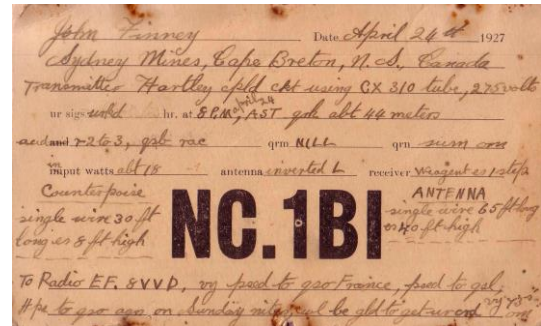 John Finney Date April 24th 1927
Sydney Mines, Cape Breton, N.S., Canada
Transmitter Hartley cpld ckt using CX 310 tube, 275 volts
ur sigs wrkd hr. at 8 P.M, april 24 AST qrh abt 44 meters
aud and r2 to 3, qsb rac qrm NILL qrn sum om
input watts abt 18 antenna inverted L receiver es 1 step
Counterpoise ANTENNA
single wire 30 ft single wire 65 ft long
long es 8 ft high es 40 ft high
NC.1BI
To Radio EF. 8VVD, vy psed to qso France, psed to qsl,
Hpe to qso agn on Sunday nites, wl be gld to get ur crd vy 73's om